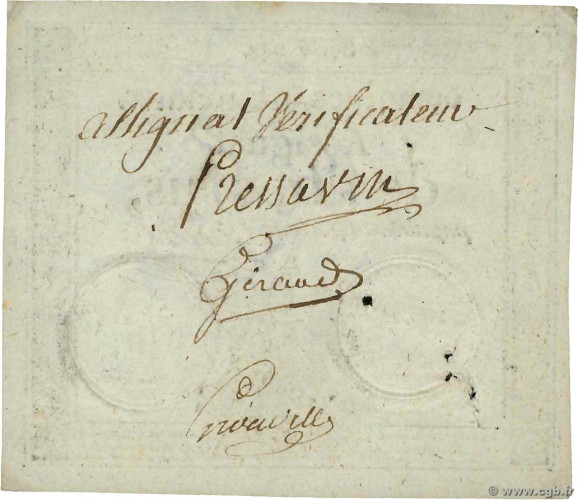 assignat Vérificateur
Pressavin
Géraud
www.cgb.fr